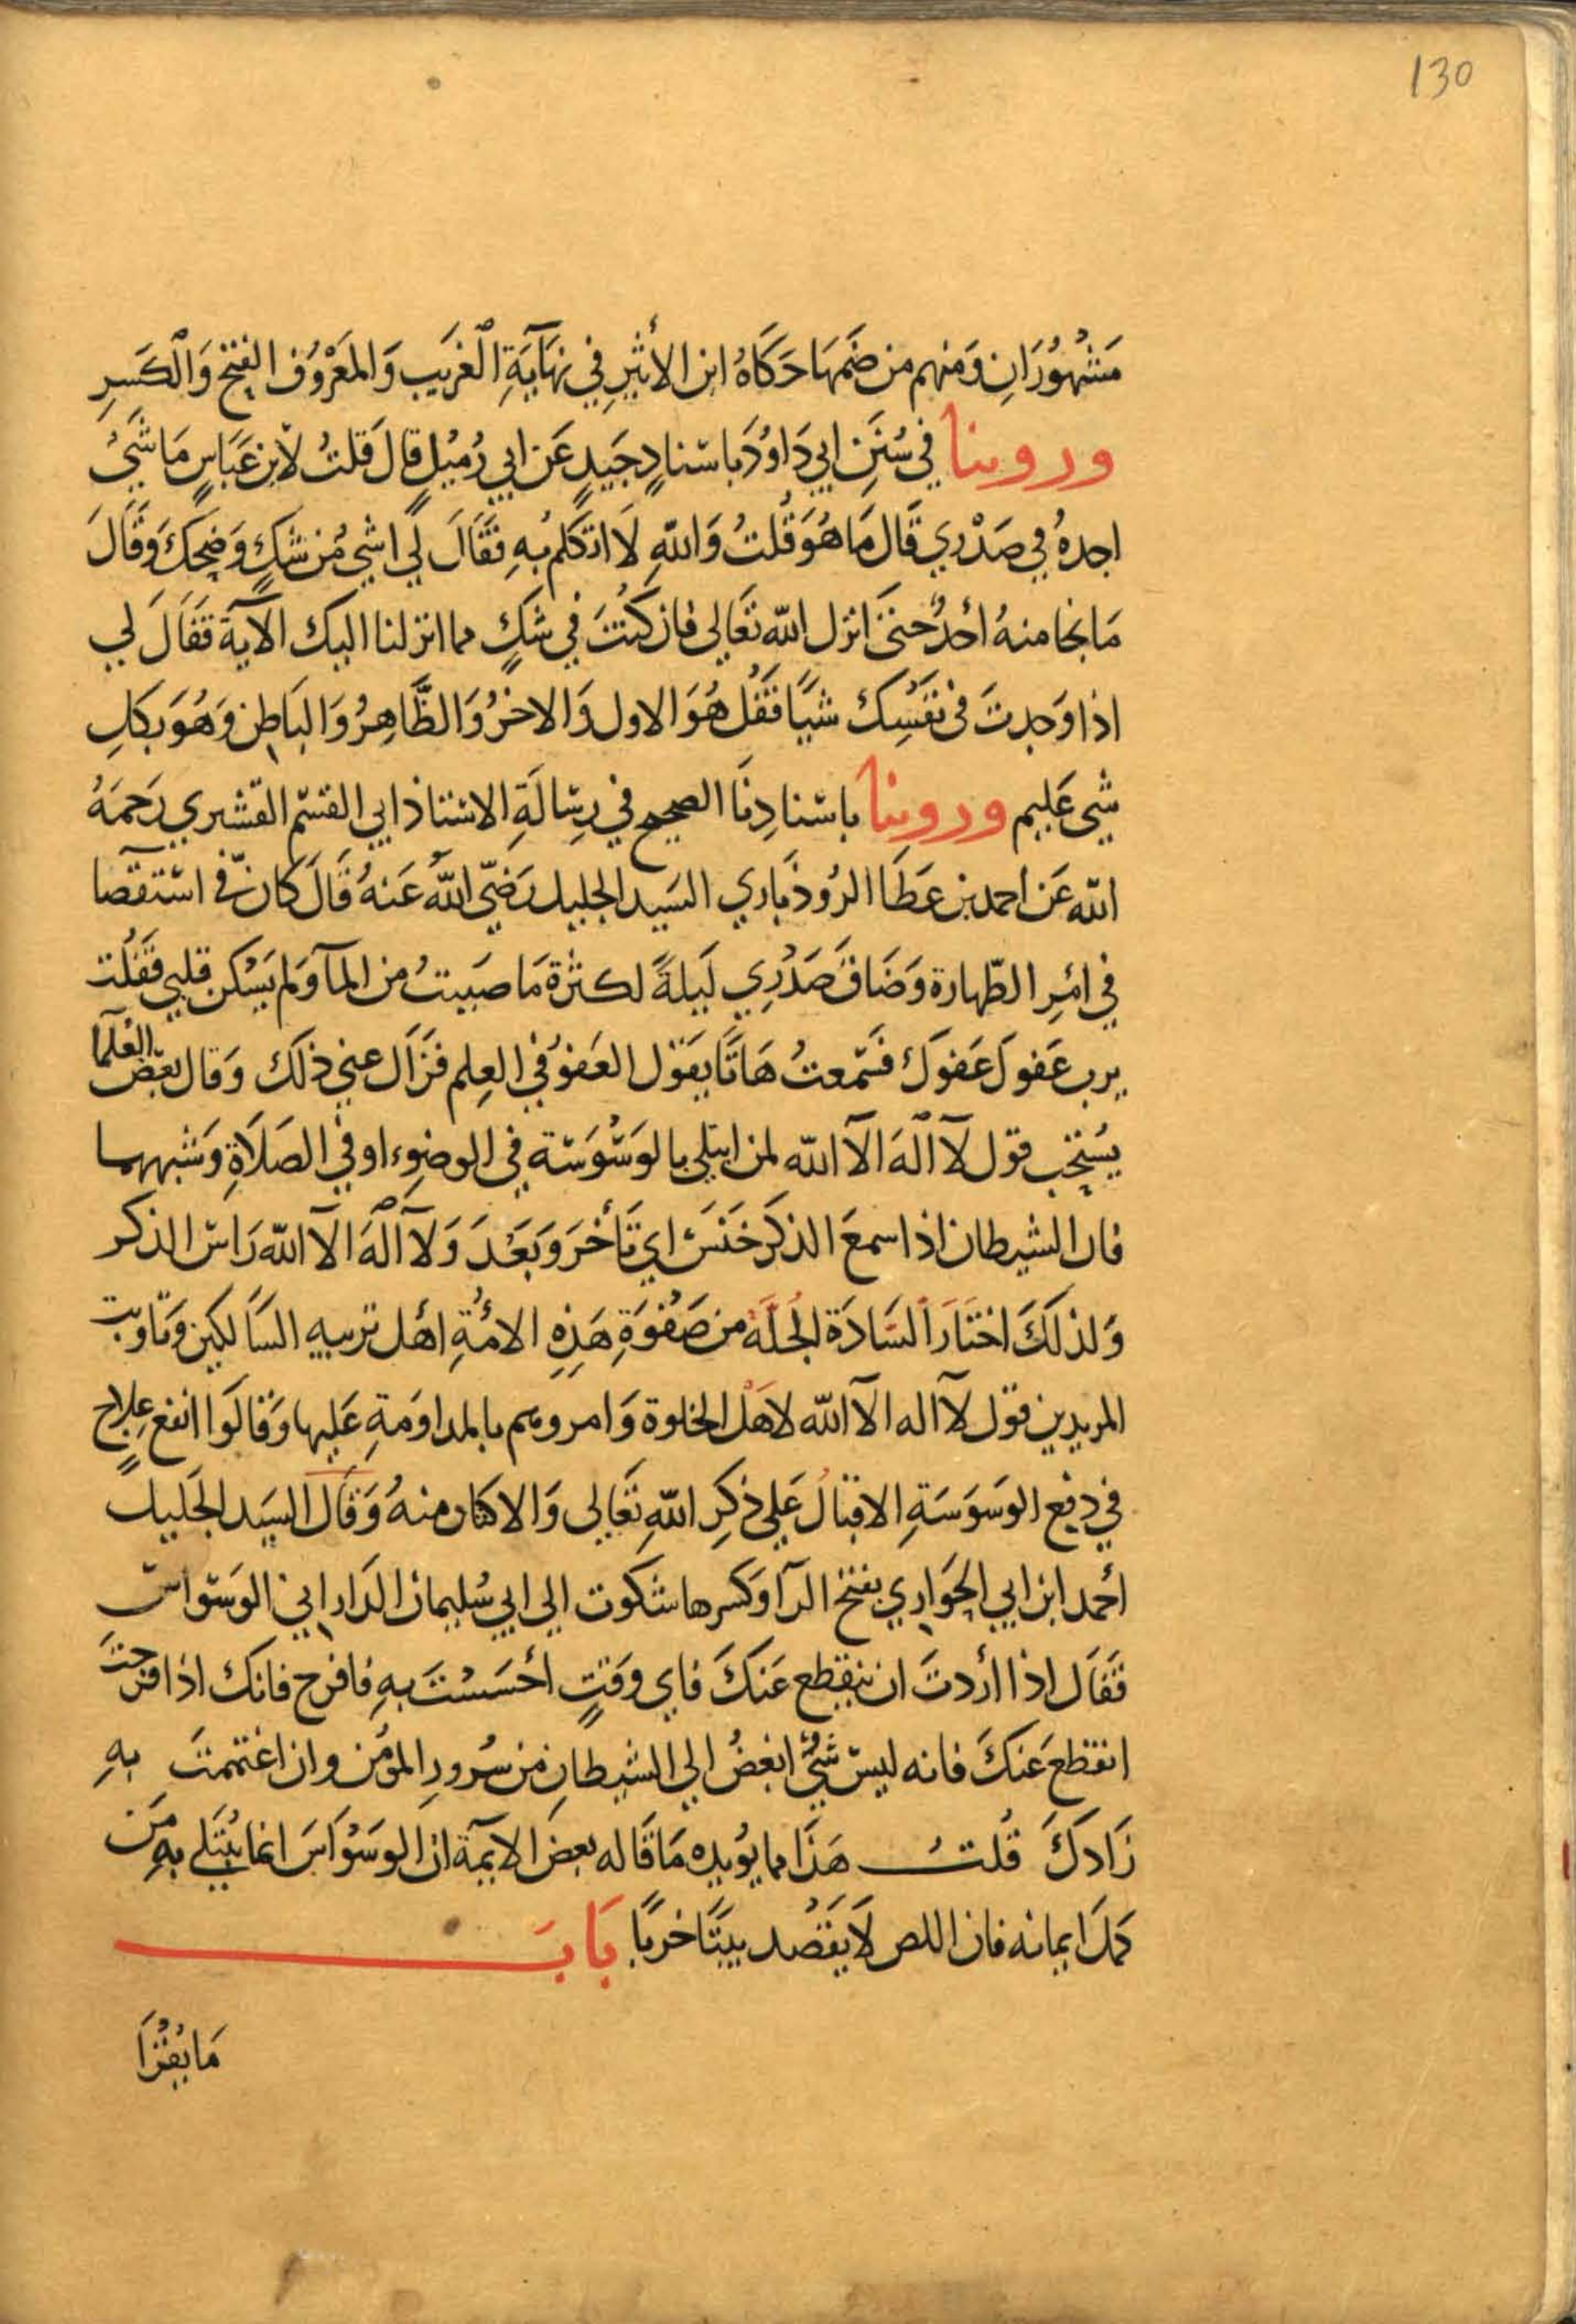 130
مَشْهُورَانِ وَمنهم من ضَمَهَا حَكَاهُ ابن الأثيرِ في نهَايَةِ الْغريَب وَالمَعْروُف الفتح وَالْكَسرِ
وروينا في سُنَنِ ابي دَاوُدَ باسْنادٍ جَيدٍ عَن ابي زُميْلٍ قالَ قلتُ لاْبن عَبَاسٍ مَا شَيءُ
اجدهُ في صَدْري قَال مَا هُوَ قُلتُ وَاللّهِ لَا اتكَلم بُهِ فقَالَ لي اشي مُن شكٍ وَضحِكَ وَقَالَ
مَا نجا منهُ أحَدُ حتىَ انزل اللّه تعَالى فان كنُتَ في شكٍ مما انزلنا اليك الآية فقَالَ لي
اذا وَجدتَ في نفَسِك شيًا فقَلُ هُوَ الاول وَالاخرُ وَالظَّاهِرُ وَالبَاطِن وَهُوَ بكلِ
شي عَليم وروينا باسْنادِنَا الصحيح في رسِالَةِ الاسْتاذ ابي القسْم القشيري رَحمَهُ
اللّه عَن احمد بن عَطَا الروُذبَاري السَيد الجليل رَضيَ اللّهُ عَنهُ قَالَ كانَ في اسْتقصَا
في امْرِ الطّهارة وَضَاقَ صَدْري لَيلةً لكثرة مَا صَبيتُ من المآ وَلم يَسْكن قلبي فقَلُت
يرب عَفوكَ عَفوكَ فسَمعتُ هَاتَفًا يقَول العَفوُ في العِلم فزَال عني ذلَك وَقال بعَض العُلَما
يُستحَب قول لآ الَهَ الآ اللّه لمن ابتلي بالوَسْوَسَة في الوضوِء او في الصَلَاةِ وَشبههما
فان الشيطان اذا سمعَ الذكرَ خَنَسَ اي تَأخرَ وَبَعُدَ وَلآ الَهَ الآ اللّه رَاسْ الذكر
وَلذلَكَ اختَارَ السَادَة الجُلَةُ من صَفْوَةِ هَذِهِ الامُةِ اهْل تربيه السَالكين وَتاديب
المريدين قول لآ اله الآ اللّه لاهْل الخلوة وَامروهم بالمداوَمةِ عَليها وَقالَوا انفع عِلاجٍ
في دفع الوَسَوَسَةِ الاقبالُ عَلى ذكرِ اللّهِ تعَالى وَالاكثار منهُ وَقَالَ السيَد الجَليل
أحمد ابن ابي الحوَاري بفتح الرآ وَكسرها شكوت الى ابي سُليمان الدَاراني الوَسْواسَ
فقَال اذا أردتَ ان ينقطع عَنكَ فاي وَقتٍ أحْسَسْتَ بهِ فافرح فانك اذا فرحتَ
انقطعَ عَنكَ فانه ليسْ شيُ ابغضُ الى الشيطانِ من سُرورِ المؤمن وان اغتممتَ بهِ
زَادكَ قُلتُ هَذَا مما يوُيده مَا قَاله بعض الايمة ان الوَسْوَاسَ انما يبُتلى بهِ مَن
كملَ ايمانه فان اللص لَا يقَصُد بيتًا خربًا بَابَ
مَا يُقرَأ